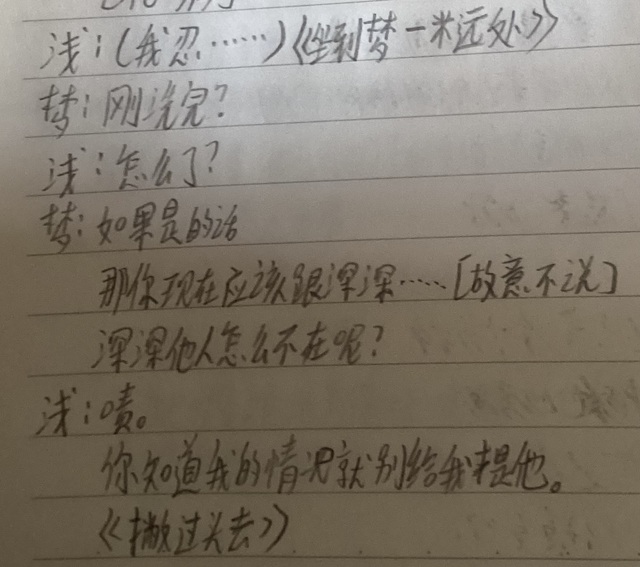 浅：(我忍……)《坐到梦一米远处》
梦：刚洗完？
浅：怎么了？
梦：如果是的话
那你现在应该跟深深……[故意不说]
深深他人怎么不在呢？
浅：啧。
你知道我的情况就别给我提他。
《撇过头去》